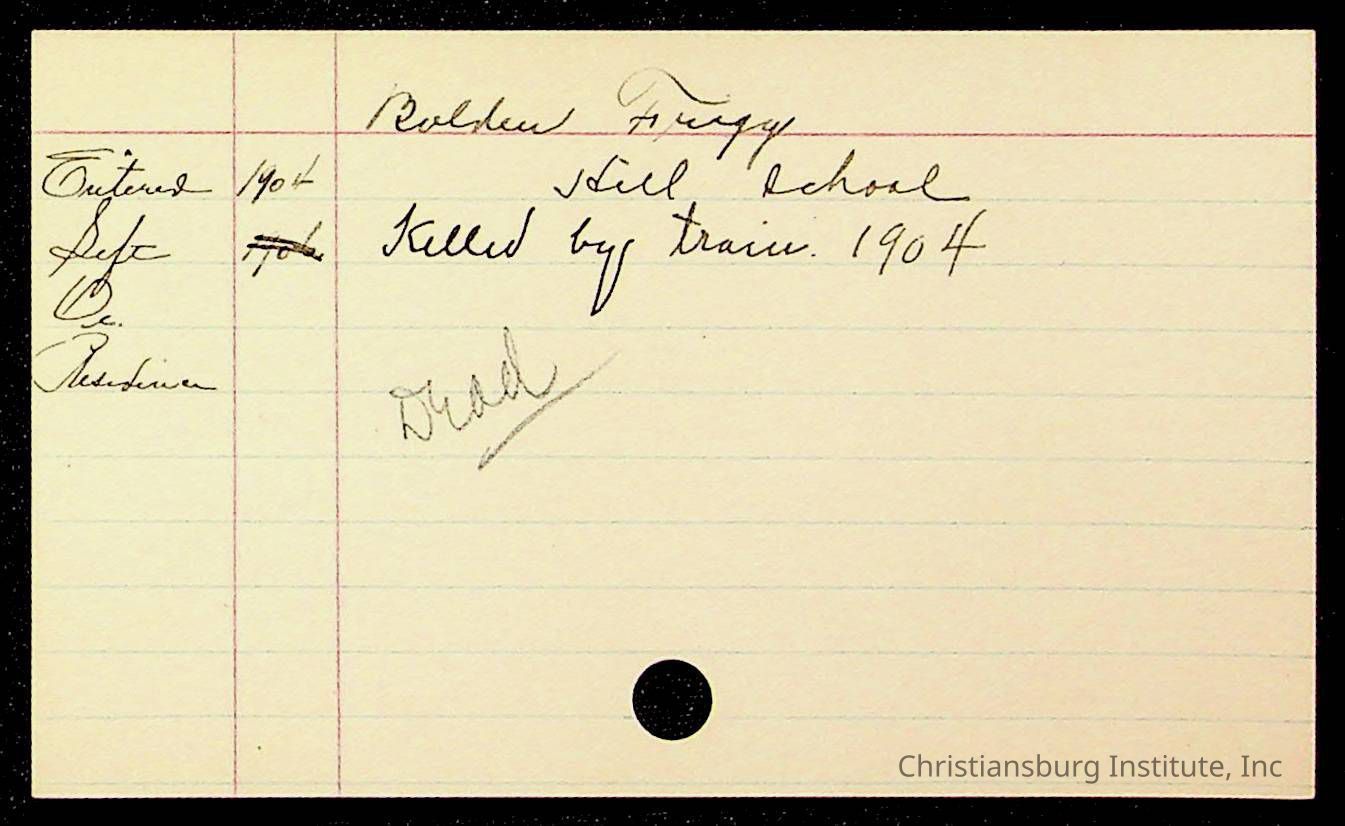 Bolden Friggy
Entered 1904 Hill School
Left 1906 Killed by train. 1904
Oc.
Residence
Dead
Christiansburg Institute, Inc